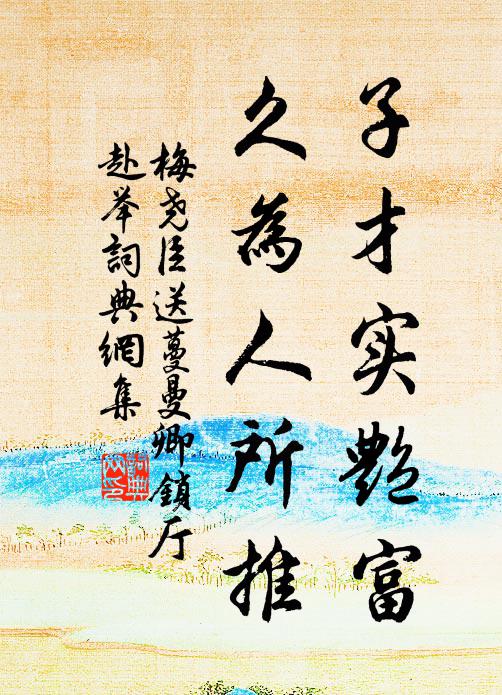 子才实艷富
久為人所推
梅尧臣送蔓曼卿鎖厅
赴举詞典網集